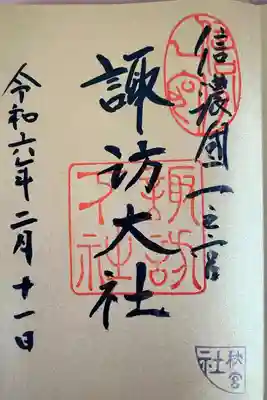 信濃國一之宮
諏訪大社
令和六年二月十一日
諏訪大社
秋宮
社